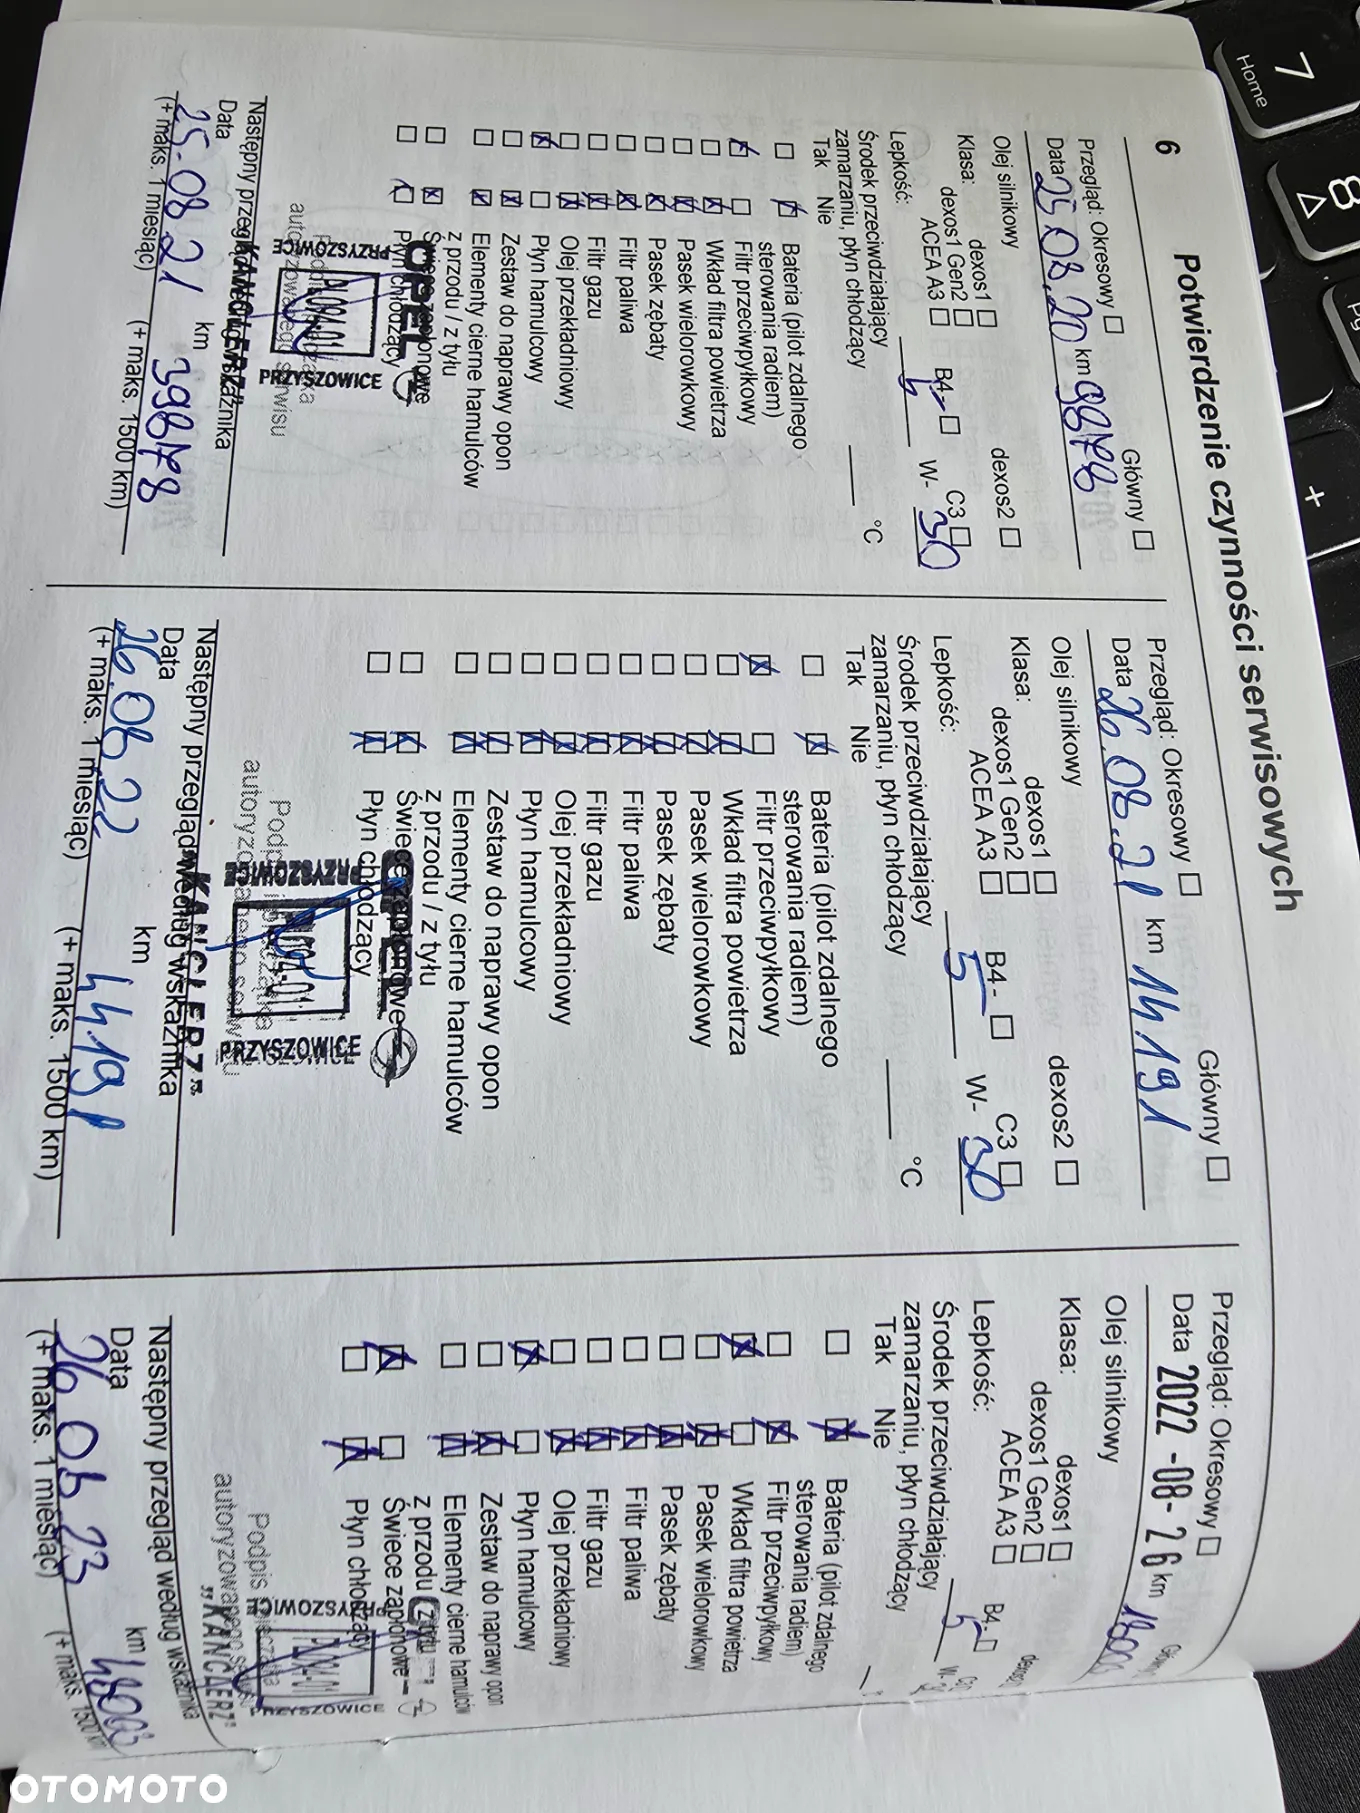 6
Potwierdzenie czynności serwisowych
Przegląd: Okresowy Główny
Data 25.08.20 km 9878
Olej silnikowy
Klasa: dexos1 dexos2
dexos1 Gen2
ACEA A3 B4 C3
Lepkość: 5 W- 30
Środek przeciwdziałający
zamarzaniu, płyn chłodzący °C
Tak Nie
Bateria (pilot zdalnego
sterowania radiem)
Filtr przeciwpyłkowy
Wkład filtra powietrza
Pasek wielorowkowy
Pasek zębaty
Filtr paliwa
Filtr gazu
Olej przekładniowy
Płyn hamulcowy
Zestaw do naprawy opon
Elementy cierne hamulców
z przodu / z tyłu
Świece zapłonowe
Płyn chłodzący
OPEL
PRZYSZOWICE
PRZYSZOWICE
autoryzowanego serwisu
Następny przegląd według wskaźnika
"KANCLERZ"
Data km
25.08.21 39878
(+ maks. 1 miesiąc) (+ maks. 1500 km)
Przegląd: Okresowy Główny
Data 26.08.21 km 14.191
Olej silnikowy
Klasa: dexos1 dexos2
dexos1 Gen2
ACEA A3 B4 - C3
Lepkość: 5 W- 30
Środek przeciwdziałający
zamarzaniu, płyn chłodzący °C
Tak Nie
Bateria (pilot zdalnego
sterowania radiem)
Filtr przeciwpyłkowy
Wkład filtra powietrza
Pasek wielorowkowy
Pasek zębaty
Filtr paliwa
Filtr gazu
Olej przekładniowy
Płyn hamulcowy
Zestaw do naprawy opon
Elementy cierne hamulców
z przodu / z tyłu
Świece zapłonowe
Płyn chłodzący
OPEL
PRZYSZOWICE
PRZYSZOWICE
autoryzowanego serwisu
Następny przegląd według wskaźnika
"KANCLERZ"
Data km
26.08.22 44.191
(+ maks. 1 miesiąc) (+ maks. 1500 km)
Przegląd: Okresowy
Data 2022 -08- 26 km
Olej silnikowy
Klasa: dexos1
dexos1 Gen2
ACEA A3 B4-
Lepkość: 5
Środek przeciwdziałający
zamarzaniu, płyn chłodzący
Tak Nie
Bateria (pilot zdalnego
sterowania radiem)
Filtr przeciwpyłkowy
Wkład filtra powietrza
Pasek wielorowkowy
Pasek zębaty
Filtr paliwa
Filtr gazu
Olej przekładniowy
Płyn hamulcowy
Zestaw do naprawy opon
Elementy cierne hamulców
z przodu z tyłu
Świece zapłonowe
Płyn chłodzący
PRZYSZOWICE
PRZYSZOWICE
Podpis i pieczątka
Następny przegląd według wskaźnika
"KANCLERZ"
Data km
26 08 23
(+ maks. 1 miesiąc) (+ maks. 1500 km
7
Home
8
+
OTOMOTO